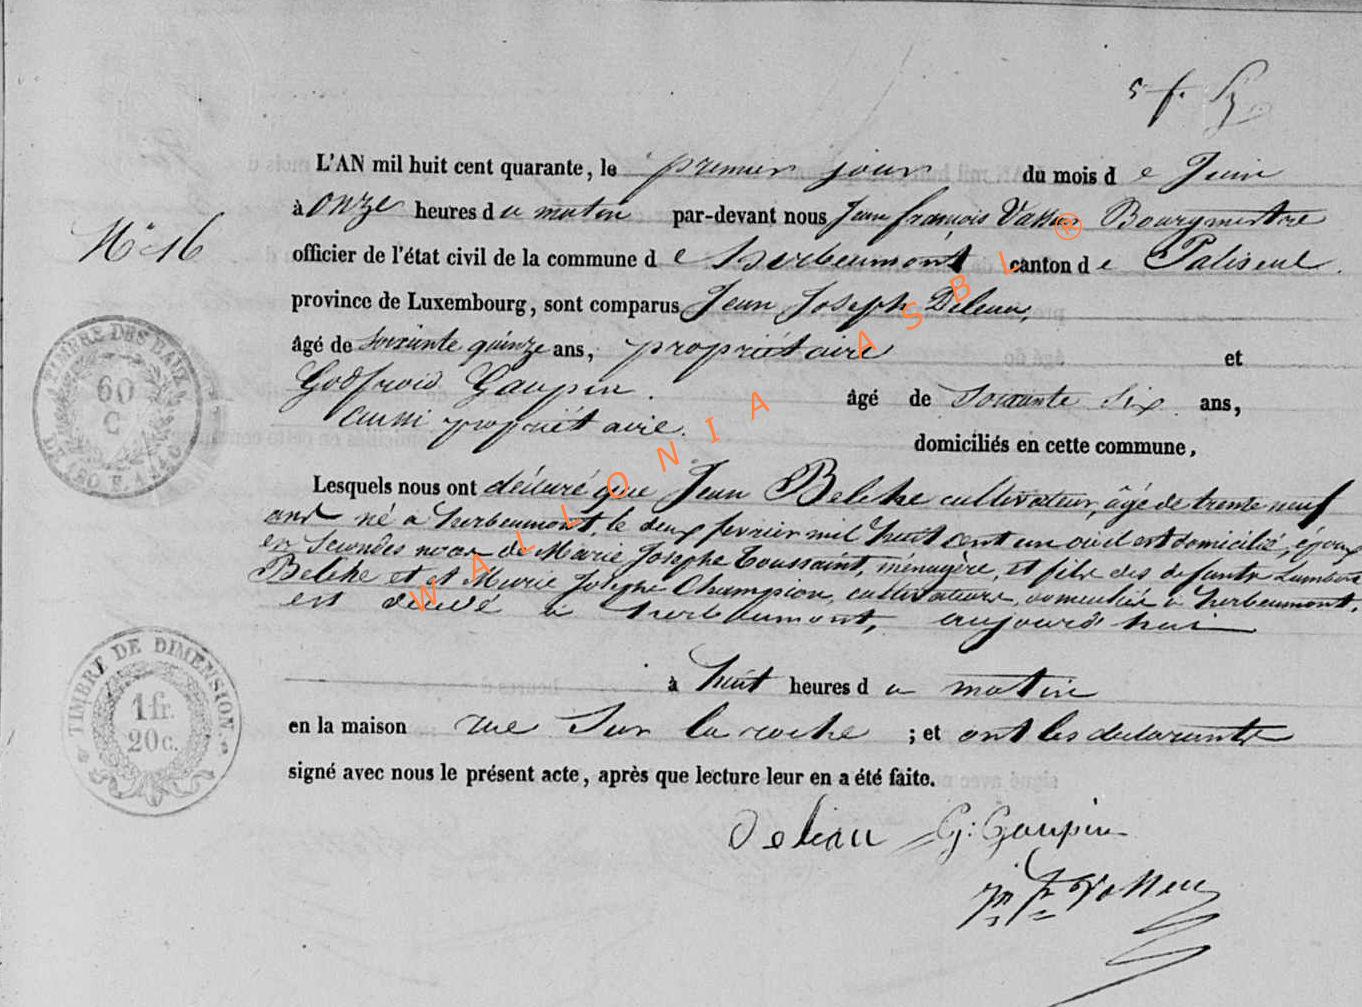 5 f.
L'AN mil huit cent quarante, le premier jour du mois d e Juin
à onze heures d u matin par-devant nous Jean françois Bourgmestre
N° 16
officier de l'état civil de la commune d e herbeumont canton d e Paliseul.
province de Luxembourg, sont comparus Jean Joseph Deleau,
âgé de soixante quinze ans, propriétaire et
Godfroid Gaupin. âgé de soixante six ans,
aussi propriétaire. domiciliés en cette commune,
Lesquels nous ont déclaré que Jean Belche cultivateur, âgé de trente neuf
ans né a herbeumont, le deux fevrier mil huit cent un où il est domicilié, époux
en secondes noces de Marie Josephe Toussaint, ménagère, et fils des defunts Lambert
Belche et et Marie Josephe Champion, cultivateurs, domiciliés à herbeumont,
est décédé à herbeumont, aujourd'hui
à huit heures d u matin
en la maison rue Sur la roche ; et ont les declarants
signé avec nous le présent acte, après que lecture leur en a été faite.
Deleau G: Gaupin
TIMBRE DES
60
C
TIMBRE DE DIMENSION.
1 fr.
20 c.
WALLONIA ASBL ®